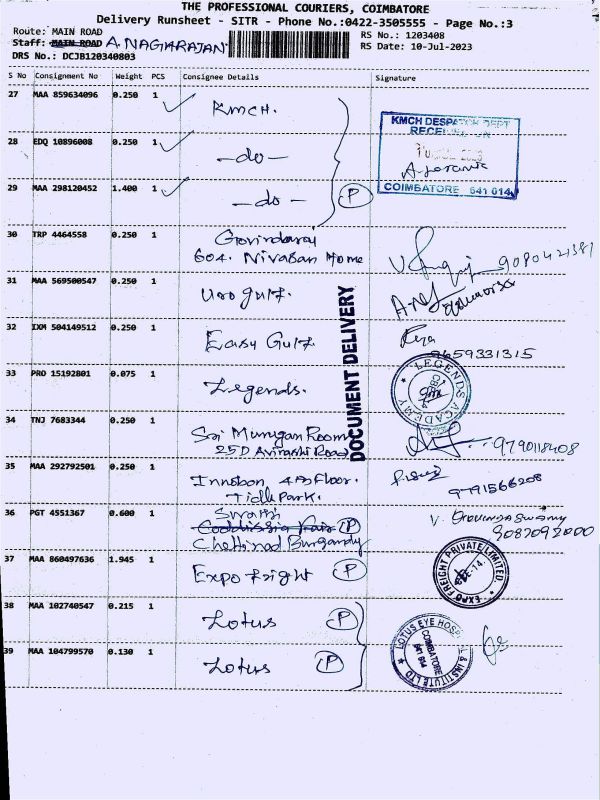 THE PROFESSIONAL COURIERS, COIMBATORE
Delivery Runsheet - SITR - Phone No.:0422-3505555 - Page No.:3
Route: MAIN ROAD
RS No.: 1203408
Staff: MAIN ROAD A. NAGARAJAN
RS Date: 10-Jul-2023
DRS No.: DCJB120340803
S No Consignment No Weight PCS Consignee Details Signature
27 MAA 859634096 0.250 1 KMCH.
KMCH DESPATCH DEPT
RECEIVED ON
28 EDQ 10896008 0.250 1 -do-
COIMBATORE 641 014
29 MAA 298120452 1.400 1 -do- P
30 TRP 4464558 0.250 1 Govindaraj
604. Nivasan Home 9080421381
31 MAA 569500547 0.250 1 Uro gulf.
32 IXM 504149512 0.250 1 Easy Gulf
9659331315
DOCUMENT DELIVERY
33 PRO 15192801 0.075 1 Legends.
LEGENDS ACADEMY
34 TNJ 7683344 0.250 1 Sri Murugan Room
25D Avinashi Road 9790118408
35 MAA 292792501 0.250 1 Innobon 4th Floor.
Tidle Park. 9791566208
36 PGT 4551367 0.600 1 Swathi
P V. Govindaswamy
Chettinad Burgandy 9082092000
37 MAA 860497636 1.945 1 Expo fright P
EXPO FREIGHT PRIVATE LIMITED
38 MAA 102740547 0.215 1 Lotus P
LOTUS EYE HOSPITAL & INSTITUTE LTD
COIMBATORE
641 014
39 MAA 104799570 0.130 1 Lotus P